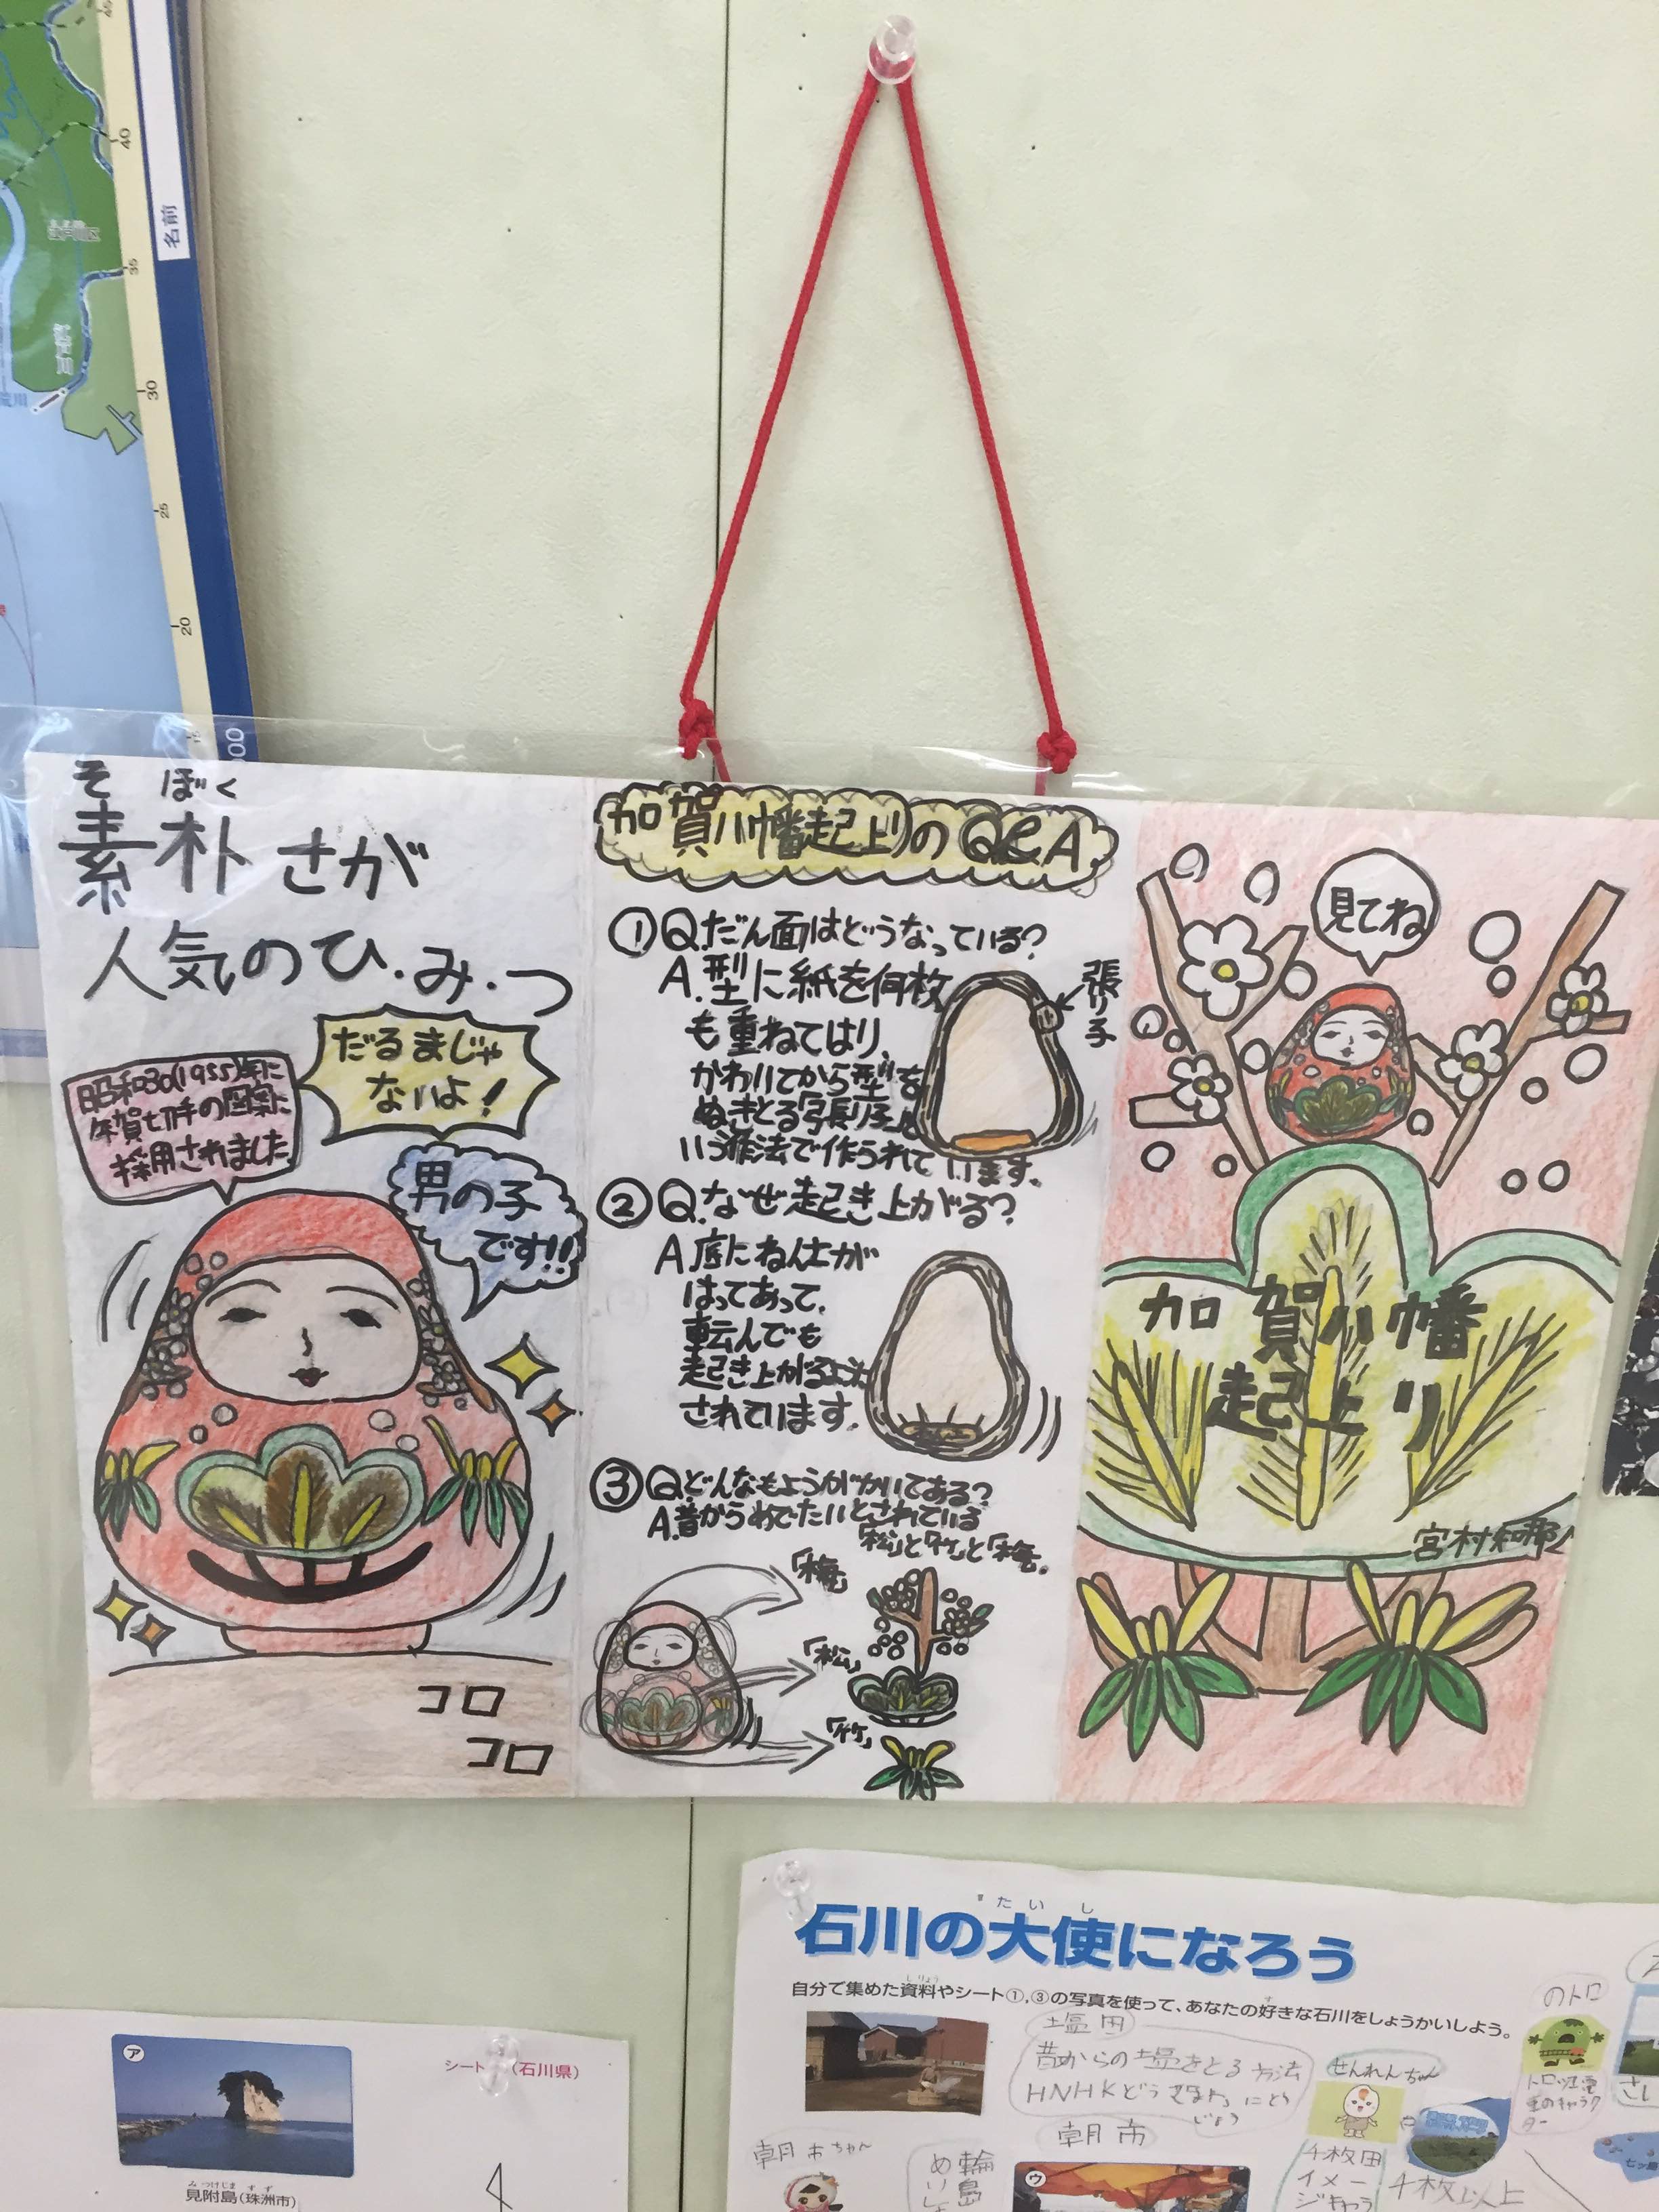 名前
40
35
30
25
20
そ ぼく
素朴さが
人気のひ.み.つ
だるまじゃ
ないよ!
昭和30(1955)年に
年賀切手の図案に
採用されました
男の子
です!!
コロ
コロ
加賀八幡起上りのQ&A
①Q.だん面はどうなっている?
A.型に紙を何枚
も重ねてはり、
かわいてから型を
ぬきとる「張り子」と
いう作法で作られています。
張り子
②Q.なぜ起き上がる?
A底にねん土が
はってあって、
転んでも
起き上がるように
されています。
③Q.どんなもようがかいてある?
A.昔からめでたいとされている
「松」と「竹」と「梅」。
「梅」
「松」
「竹」
見てね
加賀八幡
起上り
たいし
石川の大使になろう
自分で集めた資料やシート①,③の写真を使って、あなたの好きな石川をしょうかいしよう。
塩田
昔からの塩をとる方法
せんれんちゃん
のトロ
朝市
朝市ちゃん
輪島
千枚田
イメー
ジキャラ
千枚以上
ウ
ア
シート (石川県)
みつけじま すず
見附島(珠洲市)